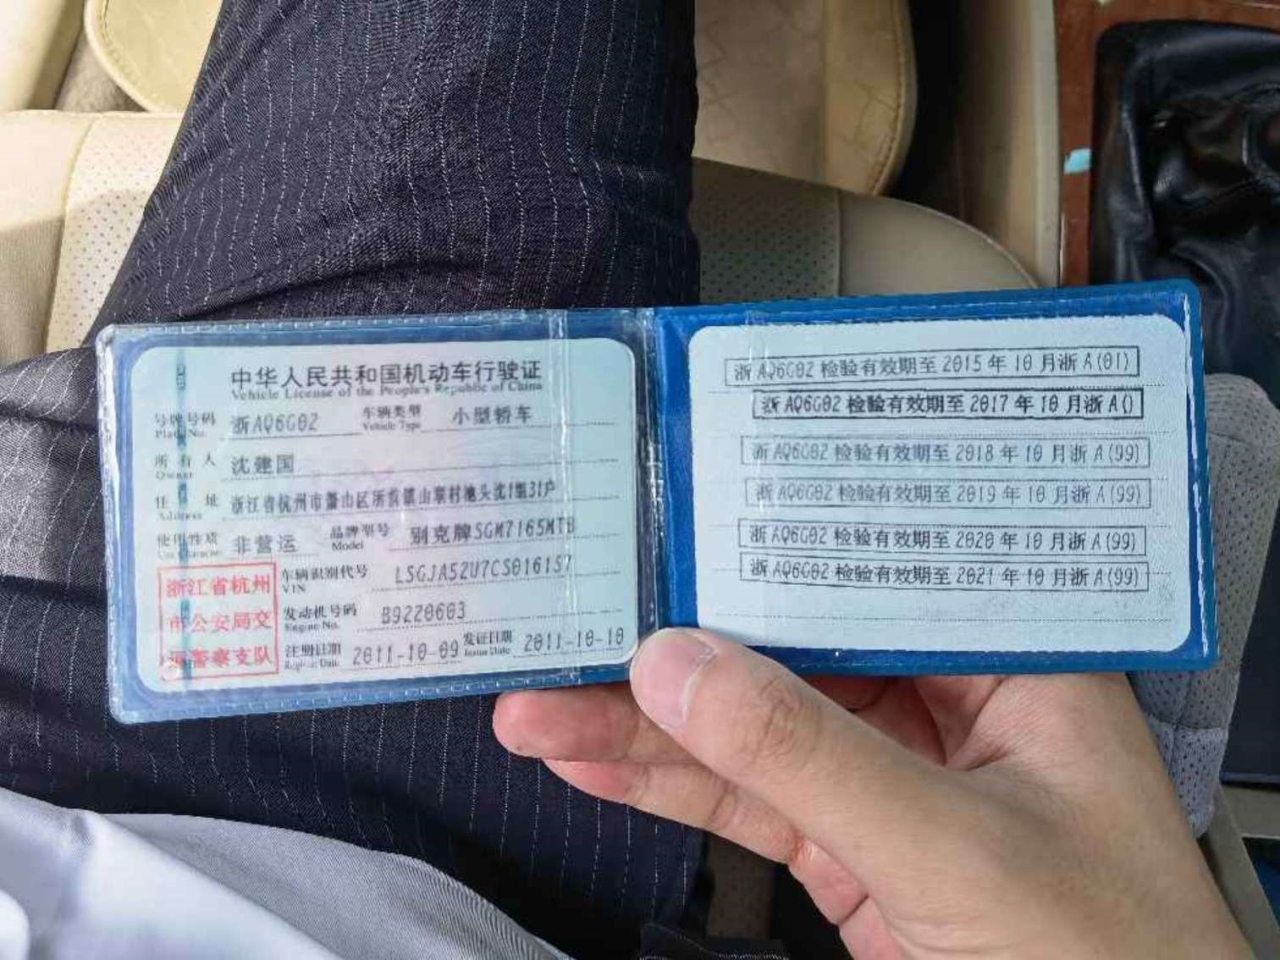 中华人民共和国机动车行驶证
Vehicle License of the People's Republic of China
号牌号码 浙AQ6G02 车辆类型 小型轿车
Plate No. Vehicle Type
所有人 沈建国
Owner
住址 浙江省杭州市萧山区所前镇山联村池头沈1组31户
Address
使用性质 非营运 品牌型号 别克牌SGM7165MTB
Use Character Model
浙江省杭州市公安局交通警察支队
车辆识别代号 LSGJA52U7CS016157
VIN
发动机号码 B9220603
Engine No.
注册日期 2011-10-09 发证日期 2011-10-10
Register Date Issue Date
浙AQ6G02 检验有效期至 2015 年 10 月浙A(01)
浙AQ6G02 检验有效期至 2017 年 10 月浙A()
浙AQ6G02 检验有效期至 2018 年 10 月浙A(99)
浙AQ6G02 检验有效期至 2019 年 10 月浙A(99)
浙AQ6G02 检验有效期至 2020 年 10 月浙A(99)
浙AQ6G02 检验有效期至 2021 年 10 月浙A(99)